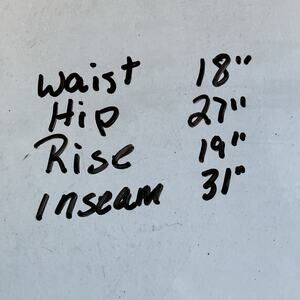 Waist 18"
Hip 27"
Rise 19"
Inseam 31"